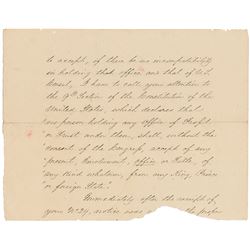 to accept, if there be no incompatibility
in holding that office and that of U.S.
Consul, I have to call your attention to
the 9th Section of the Constitution of the
United States, which declares that
no person holding any Office of Profit
or Trust under them, shall, without the
consent of the Congress, accept of any
present, Emolument, office or Title, of
any kind whatever, from any King, Prince
or foreign State."
Immediately after the receipt of
your No. 24, notice was